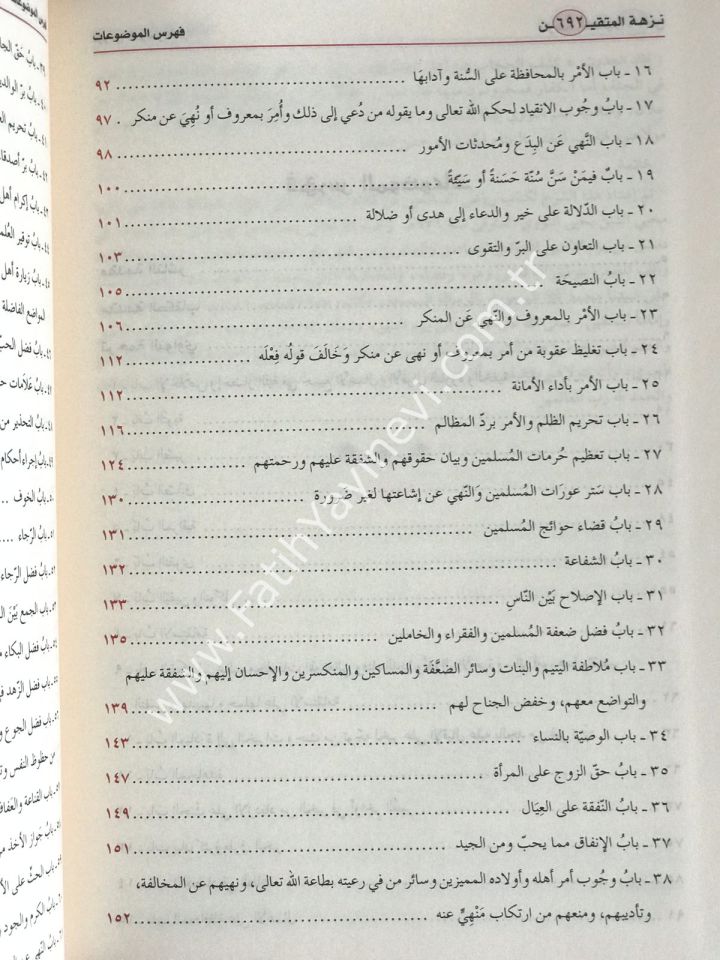 نزهة المتقيـ ٦٩٢ ـن
فهرس الموضوعات
١٦ ـ باب الأمْر بالمحافظة على السُّنة وآدابهَا ........ ٩٢
١٧ ـ بابُ وجُوب الانقياد لحكم الله تعالى وما يقوله من دُعي إلى ذلك وأُمِرَ بمعروف أو نُهِيَ عن منكر . ٩٧
١٨ ـ باب النَّهي عَن البِدَع ومُحدثات الأمور ........ ٩٨
١٩ ـ بابٌ فيمَنْ سَنَّ سُنّة حَسَنةً أو سَيّئةً ........ ١٠٠
٢٠ ـ باب الدّلالة على خير والدعاء إلى هدى أو ضلالة ........ ١٠١
٢١ ـ باب التعاون على البرّ والتقوى ........ ١٠٣
٢٢ ـ بابُ النصيحَة ........ ١٠٥
٢٣ ـ بابُ الأمْر بالمعروف والنَّهي عَن المنكر ........ ١٠٦
٢٤ ـ باب تغليظ عقوبة من أمر بمعروف أو نهى عن منكر وَخَالَفَ قولُه فِعْلَه ........ ١١٢
٢٥ ـ بابُ الأمر بأداء الأمانة ........ ١١٢
٢٦ ـ باب تحريم الظلم والأمر بردّ المظالم ........ ١١٦
٢٧ ـ باب تعظيم حُرمات المُسلمين وبيان حقوقهم والشفقة عليهم ورحمتهم ........ ١٢٤
٢٨ ـ باب سَتر عورَات المُسلمين وَالنّهي عن إشاعتها لغير ضَرورة ........ ١٣٠
٢٩ ـ بابُ قضاء حوائج المُسلمين ........ ١٣١
٣٠ ـ بابُ الشفاعة ........ ١٣٢
٣١ ـ باب الإصلاح بَيْن النّاسِ ........ ١٣٣
٣٢ ـ بابُ فضل ضعفة المُسلمين والفقراء والخاملين ........ ١٣٥
٣٣ ـ باب مُلاطفة اليتيم والبنات وسائر الضعَّفَة والمساكين والمنكسرين والإحسان إليهم والشفقة عليهم
والتواضع معهم، وخفض الجناح لهم ........ ١٣٩
٣٤ ـ باب الوصيّة بالنساء ........ ١٤٣
٣٥ ـ بابُ حقّ الزوج على المرأة ........ ١٤٧
٣٦ ـ بابُ النّفقة على العِيَال ........ ١٤٩
٣٧ ـ بابُ الإنفاق مما يحبّ ومن الجيد ........ ١٥١
٣٨ ـ بابُ وجُوب أمر أهله وأولاده المميزين وسائر من في رعيته بطاعة الله تعالى، ونهيهم عن المخالفة،
وتأديبهم، ومنعهم من ارتكاب مَنْهِيٍّ عنه ........ ١٥٢
www.FatihYayinevi.com.tr